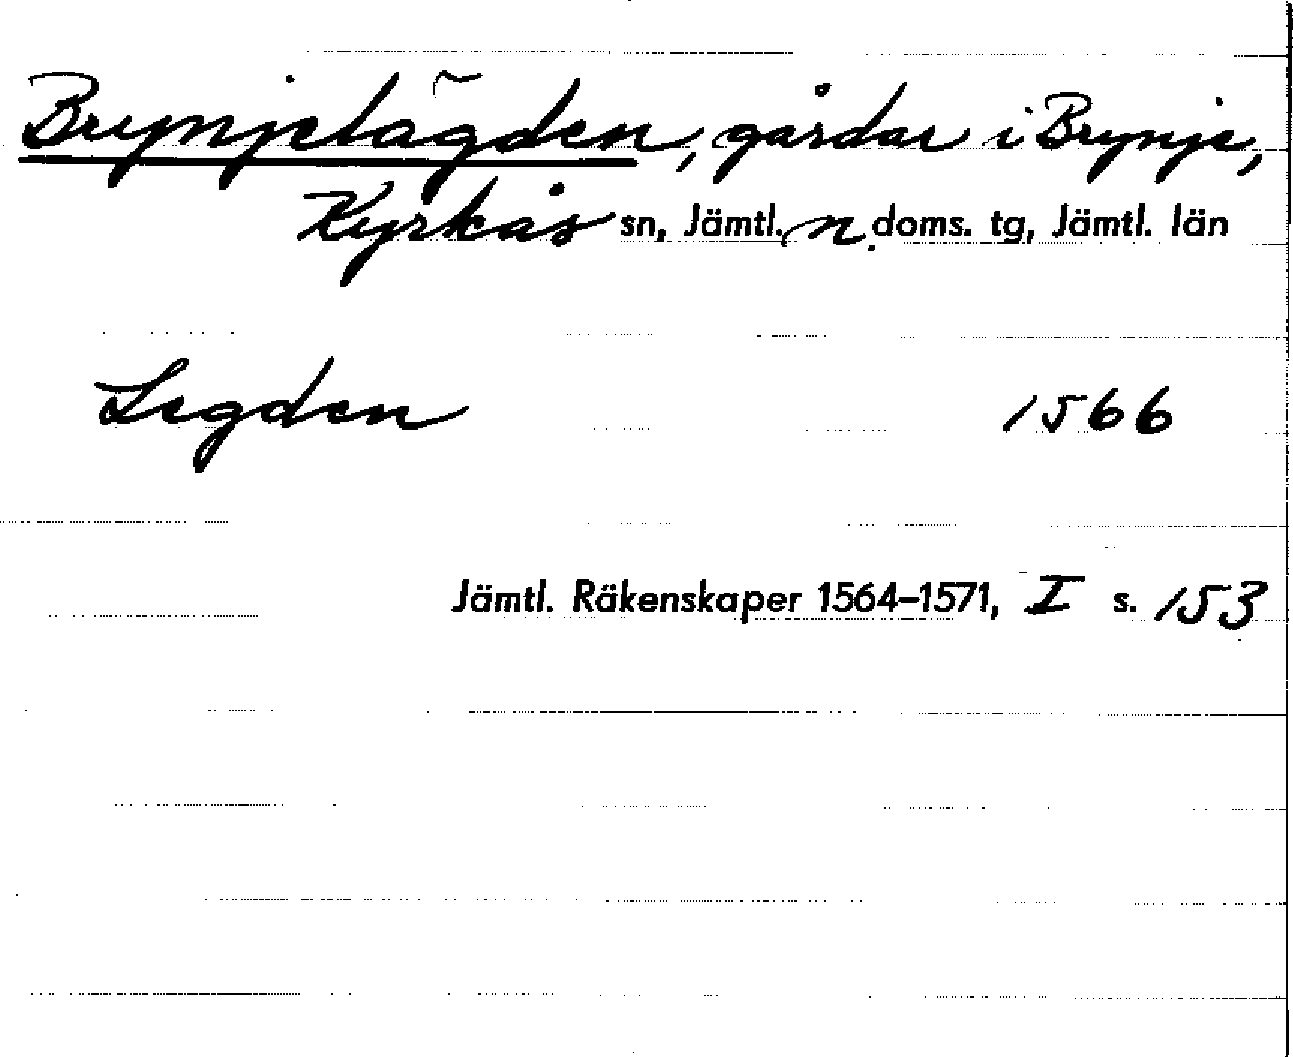 Brynjelägden, gårdar i Brynje,
Kyrkås sn, Jämtl. n doms. tg, Jämtl. län
Legden 1566
Jämtl. Räkenskaper 1564–1571, I s. 153